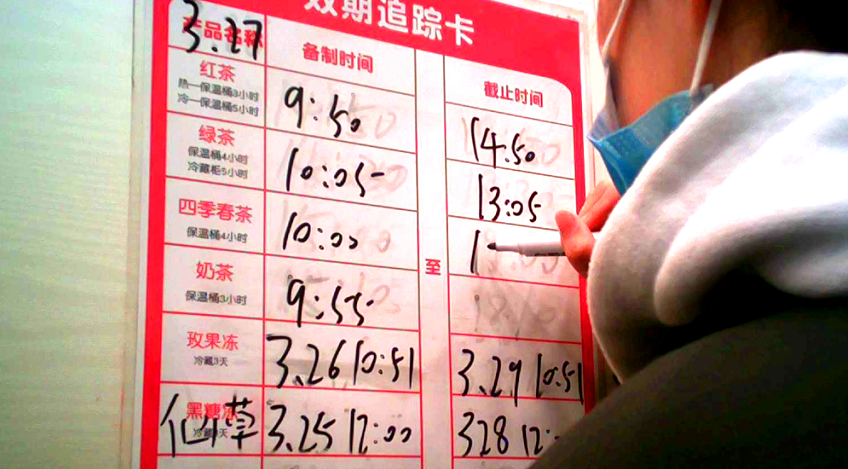 效期追踪卡
产品名称
3.27
备制时间
截止时间
红茶
热一保温桶3小时
冷一保温桶5小时
9:50
14:50
绿茶
保温桶4小时
冷藏柜5小时
10:05
13:05
四季春茶
保温桶4小时
10:00
至
奶茶
保温桶3小时
9:55
玫果冻
冷藏3天
3.26 10:51
3.29 10:51
黑糖冻
仙草
3.25 12:00
328 12: